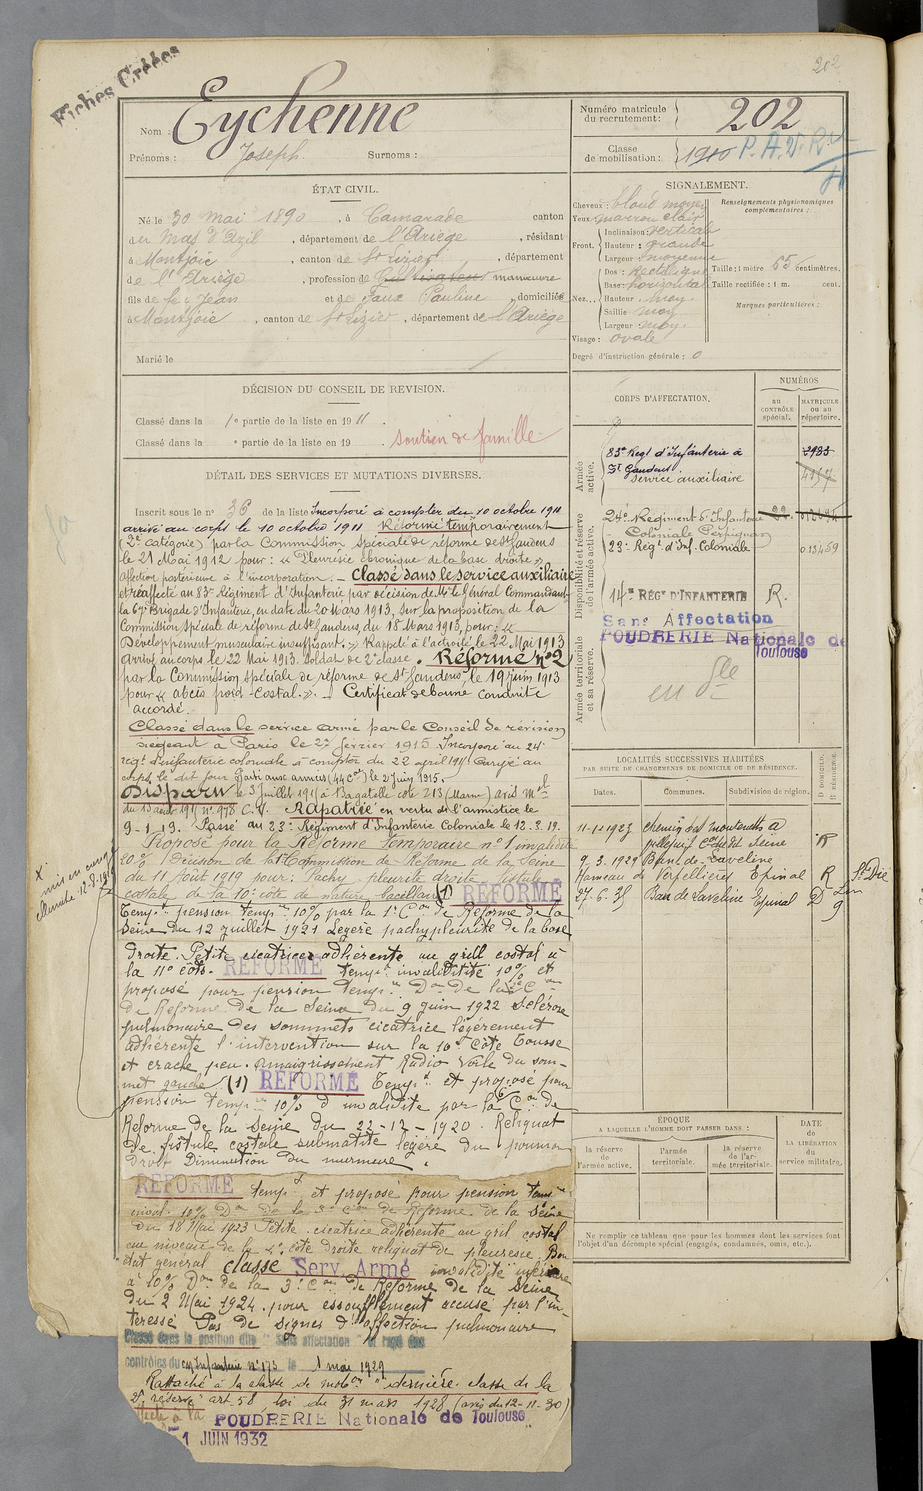 Fiches Créées
202
Nom : Eychenne
Prénoms : Joseph Surnoms :
Numéro matricule du recrutement : 202
Classe de mobilisation : 1910
ÉTAT CIVIL.
Né le 30 mai 1890, à Camarade canton
du Mas d'Azil, département de l'Ariège, résidant
à Montjoie, canton de St Lizier, département
de l'Ariège, profession de Cultivateur manœuvre
fils de feu Jean et de Faux Pauline, domiciliés
à Montjoie, canton de St Lizier, département de l'Ariège
Marié le
SIGNALEMENT.
Cheveux : blond moyen
Yeux : marron clair
Front. Inclinaison : verticale
Hauteur : grande
Largeur : moyenne
Nez. Dos : rectiligne
Base : horizontal
Hauteur : moy.
Saillie : moy
Largeur : moy.
Visage : ovale
Renseignements physionomiques complémentaires :
Taille : 1 mètre 65 centimètres.
Taille rectifiée : 1 m. cent.
Marques particulières :
Degré d'instruction générale : 0
DÉCISION DU CONSEIL DE REVISION.
Classé dans la 1e partie de la liste en 1911.
Classé dans la e partie de la liste en 19 . soutien de famille
DÉTAIL DES SERVICES ET MUTATIONS DIVERSES.
Inscrit sous le no 36 de la liste Incorporé à compter du 10 octobre 1911
arrivé au corps le 10 octobre 1911 Réformé temporairement
(2e catégorie) par la Commission spéciale de réforme de St Gaudens
le 21 Mai 1912 pour : « Pleurésie chronique de la base droite »
affection postérieure à l'incorporation. - Classé dans le service auxiliaire
et réaffecté au 83e Régiment d'Infanterie par décision de Mr le Général Commandant
la 67e Brigade d'Infanterie, en date du 20 Mars 1913, sur la proposition de la
Commission spéciale de réforme de St Gaudens, du 18 Mars 1913, pour : «
Développement musculaire insuffisant. » Rappelé à l'activité le 22 Mai 1913
arrivé au corps le 22 Mai 1913. Soldat de 2e classe. Réformé no 2
par la Commission spéciale de réforme de St Gaudens, le 19 juin 1913
pour « abcès froid costal. » - Certificat de bonne conduite
accordé.
Classé dans le service armé par le Conseil de révision
siégeant à Paris le 27 février 1915 Incorporé au 24e
régt d'infanterie coloniale à compter du 22 avril 1915 arrivé au
corps le dit jour Parti aux armées (44 Cal) le 2 juin 1915.
Disparu le 3 juillet 1915 à Bagatelle cote 213 (Marne) avis Mel
du 13 août 1915 no 978 C.V. Rapatrié en vertu de l'armistice le
9-1-19. Passé au 23e Régiment d'Infanterie Coloniale le 12.3.19.
Proposé pour la Réforme Temporaire no 1 invalidité
20% Décision de la Commission de Réforme de la Seine
du 11 Août 1919 pour : Pachy pleurite droite fistule
costale de la 10e côte de nature bacillaire (1) RÉFORMÉ
Tempt pension tempre 10% par la 1e Con de Réforme de la
Seine du 12 juillet 1921 Légère pachypleurite de la base
droite. Petite cicatrice adhérente au grill costal à
la 11e côte. RÉFORMÉ tempt invalidité 10% et
proposé pour pension tempre Don de la Con
de Réforme de la Seine du 9 juin 1922 Sclérose
pulmonaire des sommets cicatrice légèrement
adhérente l'intervention sur la 10e côte Tousse
et crache peu. Amaigrissement Radio voile du som-
met gauche (1) RÉFORMÉ Tempt et proposé pour
pension tempre 10% d'invalidité par la Con de
Réforme de la Seine du 22-12-1920. Reliquat
de fistule costale submatité légère du poumon
droit Diminution du murmure.
RÉFORMÉ tempt et proposé pour pension temre
inval. 10% Don de la 3e Con de Réforme de la Seine
du 18 Mai 1923 Petite cicatrice adhérente au gril costal
au niveau de la côte droite reliquat de pleurésie. Bon
état général classé Serv. Armé invalidité inférieure
à 10% Don de la 3e Con de Réforme de la Seine
du 2 Mai 1924. pour essoufflement accusé par l'in-
téressé Pas de signes d'affection pulmonaire
Classé dans la position dite "Sans affectation" et rayé des
contrôles du Infanterie no 173 le 1 mai 1929
Rattaché à la classe de mobon "dernière classe de la
2e réserve" art. 58, loi du 31 mars 1928 (avis du 12-11-30)
à la POUDRERIE Nationale de Toulouse
1 JUIN 1932
CORPS D'AFFECTATION.
NUMÉROS
AU CONTRÔLE spécial.
MATRICULE OU AU répertoire.
Armée active.
83e Régt d'Infanterie à 2933
St Gaudens.
service auxiliaire
Disponibilité et réserve de l'armée active.
24e Régiment d'Infanterie
Coloniale Perpignan
23e Régt d'Inf. Coloniale
14me RÉGt D'INFANTERIE R.
Sans Affectation
POUDRERIE Nationale de
Toulouse
Armée territoriale et sa réserve.
LOCALITÉS SUCCESSIVES HABITÉES
PAR SUITE DE CHANGEMENTS DE DOMICILE OU DE RÉSIDENCE.
Dates. Communes. Subdivision de région. D DOMICILE. R RÉSIDENCE.
9.3.1929 Ban de Laveline
Hameau de Verpellières Epinal R St Dié
27.6.35 Ban de Laveline Epinal D
ÉPOQUE
A LAQUELLE L'HOMME DOIT PASSER DANS :
la réserve de l'armée active.
l'armée territoriale.
la réserve de l'armée territoriale.
DATE de LA LIBÉRATION du service militaire.
Ne remplir ce tableau que pour les hommes dont les services font
l'objet d'un décompte spécial (engagés, condamnés, omis, etc.).